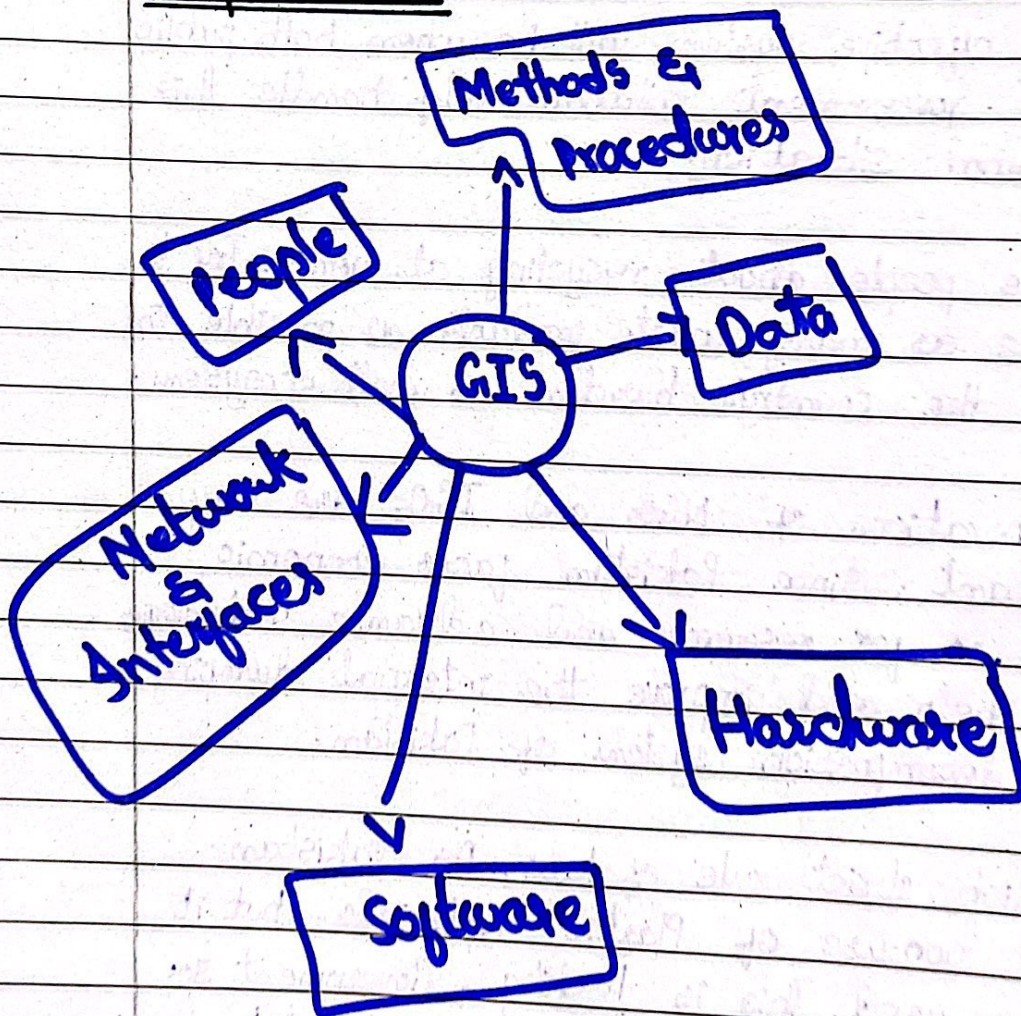 Methods &
Procedures
People
Data
GIS
Network
&
Interfaces
Hardware
Software